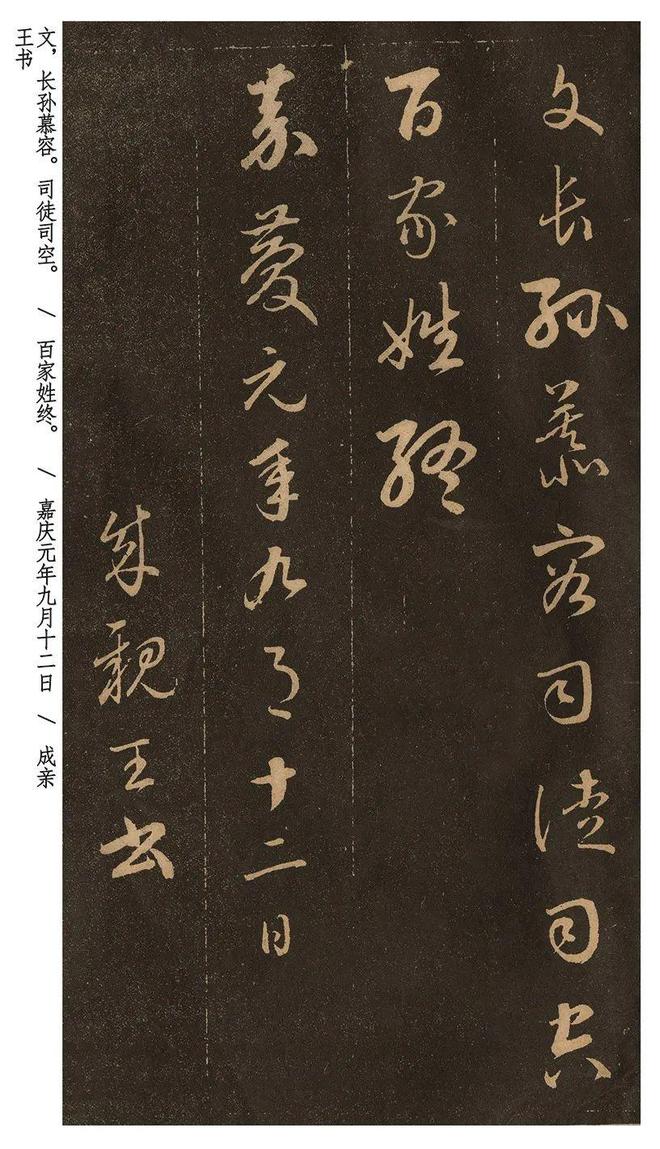 文长孙慕容司徒司空
百家姓终
嘉庆元年九月十二日
成亲王书
文，长孙慕容。司徒司空。 / 百家姓终。 / 嘉庆元年九月十二日 / 成亲
王书